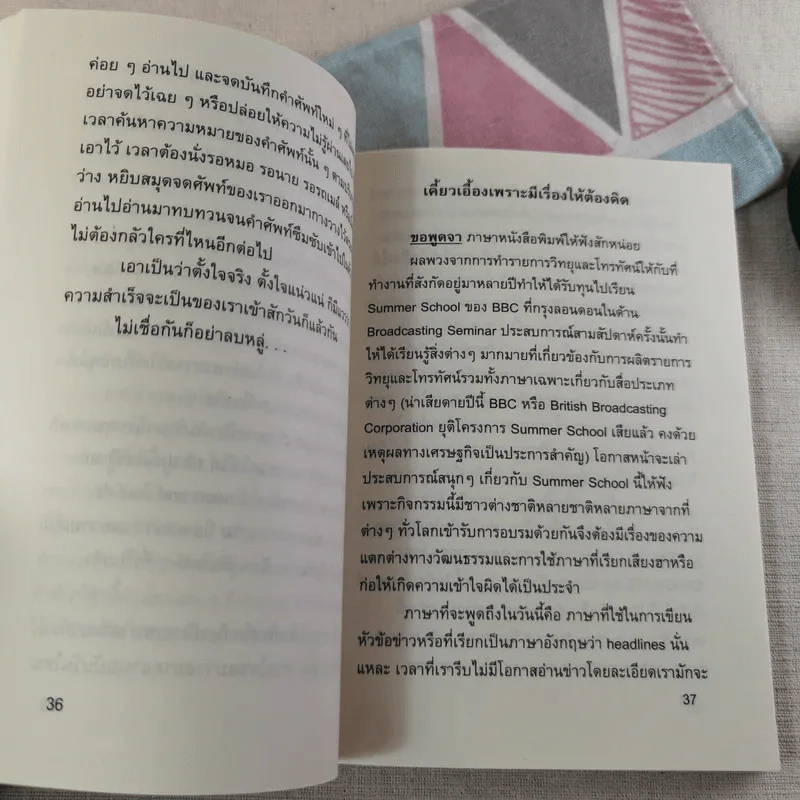 ค่อย ๆ อ่านไป และจดบันทึกคำศัพท์ใหม่ ๆ
อย่าจดไว้เฉย ๆ หรือปล่อยให้ความไม่รู้ผ่าน
เวลาค้นหาความหมายของคำศัพท์นั้น ๆ
เอาไว้ เวลาต้องนั่งรอหมอ รอนาย รอรถเมล์
ว่าง หยิบสมุดจดศัพท์ของเราออกมากางวางไว้
อ่านไปอ่านมาทบทวนจนคำศัพท์ซึมซับเข้าไป
ไม่ต้องกลัวใครที่ไหนอีกต่อไป
เอาเป็นว่าตั้งใจจริง ตั้งใจแน่วแน่ ก็มี
ความสำเร็จจะเป็นของเราเข้าสักวันก็แล้วกัน
ไม่เชื่อกันก็อย่าลบหลู่. . .
36
เคี้ยวเอื้องเพราะมีเรื่องให้ต้องคิด
ขอพูดจา ภาษาหนังสือพิมพ์ให้ฟังสักหน่อย
ผลพวงจากการทำรายการวิทยุและโทรทัศน์ให้กับที่
ทำงานที่สังกัดอยู่มาหลายปีทำให้ได้รับทุนไปเรียน
Summer School ของ BBC ที่กรุงลอนดอนในด้าน
Broadcasting Seminar ประสบการณ์สามสัปดาห์ครั้งนั้นทำ
ให้ได้เรียนรู้สิ่งต่างๆ มากมายที่เกี่ยวข้องกับการผลิตรายการ
วิทยุและโทรทัศน์รวมทั้งภาษาเฉพาะเกี่ยวกับสื่อประเภท
ต่างๆ (น่าเสียดายปีนี้ BBC หรือ British Broadcasting
Corporation ยุติโครงการ Summer School เสียแล้ว คงด้วย
เหตุผลทางเศรษฐกิจเป็นประการสำคัญ) โอกาสหน้าจะเล่า
ประสบการณ์สนุกๆ เกี่ยวกับ Summer School นี้ให้ฟัง
เพราะกิจกรรมนี้มีชาวต่างชาติหลายชาติหลายภาษาจากที่
ต่างๆ ทั่วโลกเข้ารับการอบรมด้วยกันจึงต้องมีเรื่องของความ
แตกต่างทางวัฒนธรรมและการใช้ภาษาที่เรียกเสียงฮาหรือ
ก่อให้เกิดความเข้าใจผิดได้เป็นประจำ
ภาษาที่จะพูดถึงในวันนี้คือ ภาษาที่ใช้ในการเขียน
หัวข้อข่าวหรือที่เรียกเป็นภาษาอังกฤษว่า headlines นั่น
แหละ เวลาที่เรารีบไม่มีโอกาสอ่านข่าวโดยละเอียดเรามักจะ
37